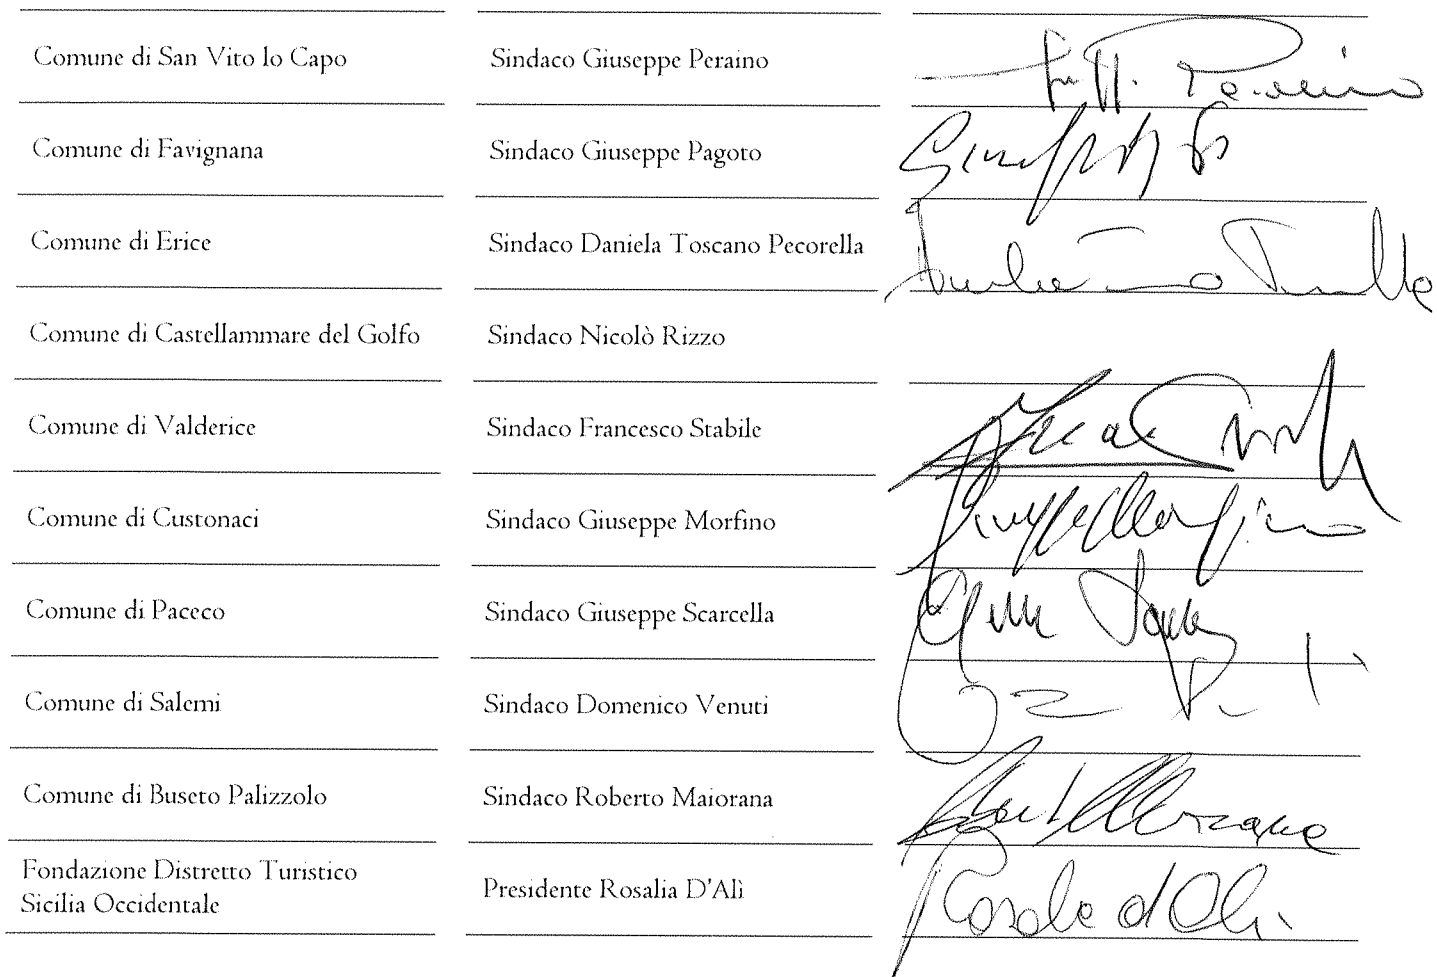 Comune di San Vito lo Capo Sindaco Giuseppe Peraino
Comune di Favignana Sindaco Giuseppe Pagoto
Comune di Erice Sindaco Daniela Toscano Pecorella
Comune di Castellammare del Golfo Sindaco Nicolò Rizzo
Comune di Valderice Sindaco Francesco Stabile
Comune di Custonaci Sindaco Giuseppe Morfino
Giuseppe Morfino
Comune di Paceco Sindaco Giuseppe Scarcella
Comune di Salemi Sindaco Domenico Venuti
Comune di Buseto Palizzolo Sindaco Roberto Maiorana
Fondazione Distretto Turistico
Sicilia Occidentale
Presidente Rosalia D'Alì